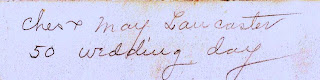 Ches & May Lancaster
50 wedding day